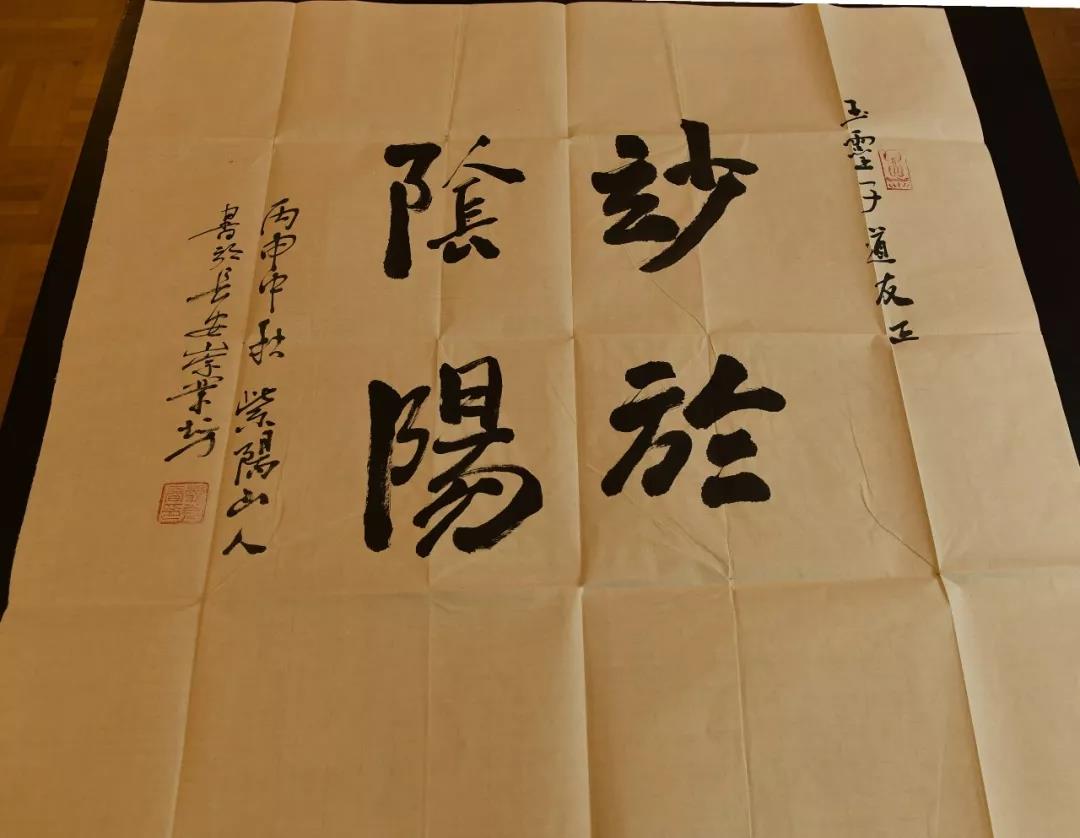 玉靈子道友正
玅於
陰陽
丙申中秋 紫陽山人
書於長安崇業坊